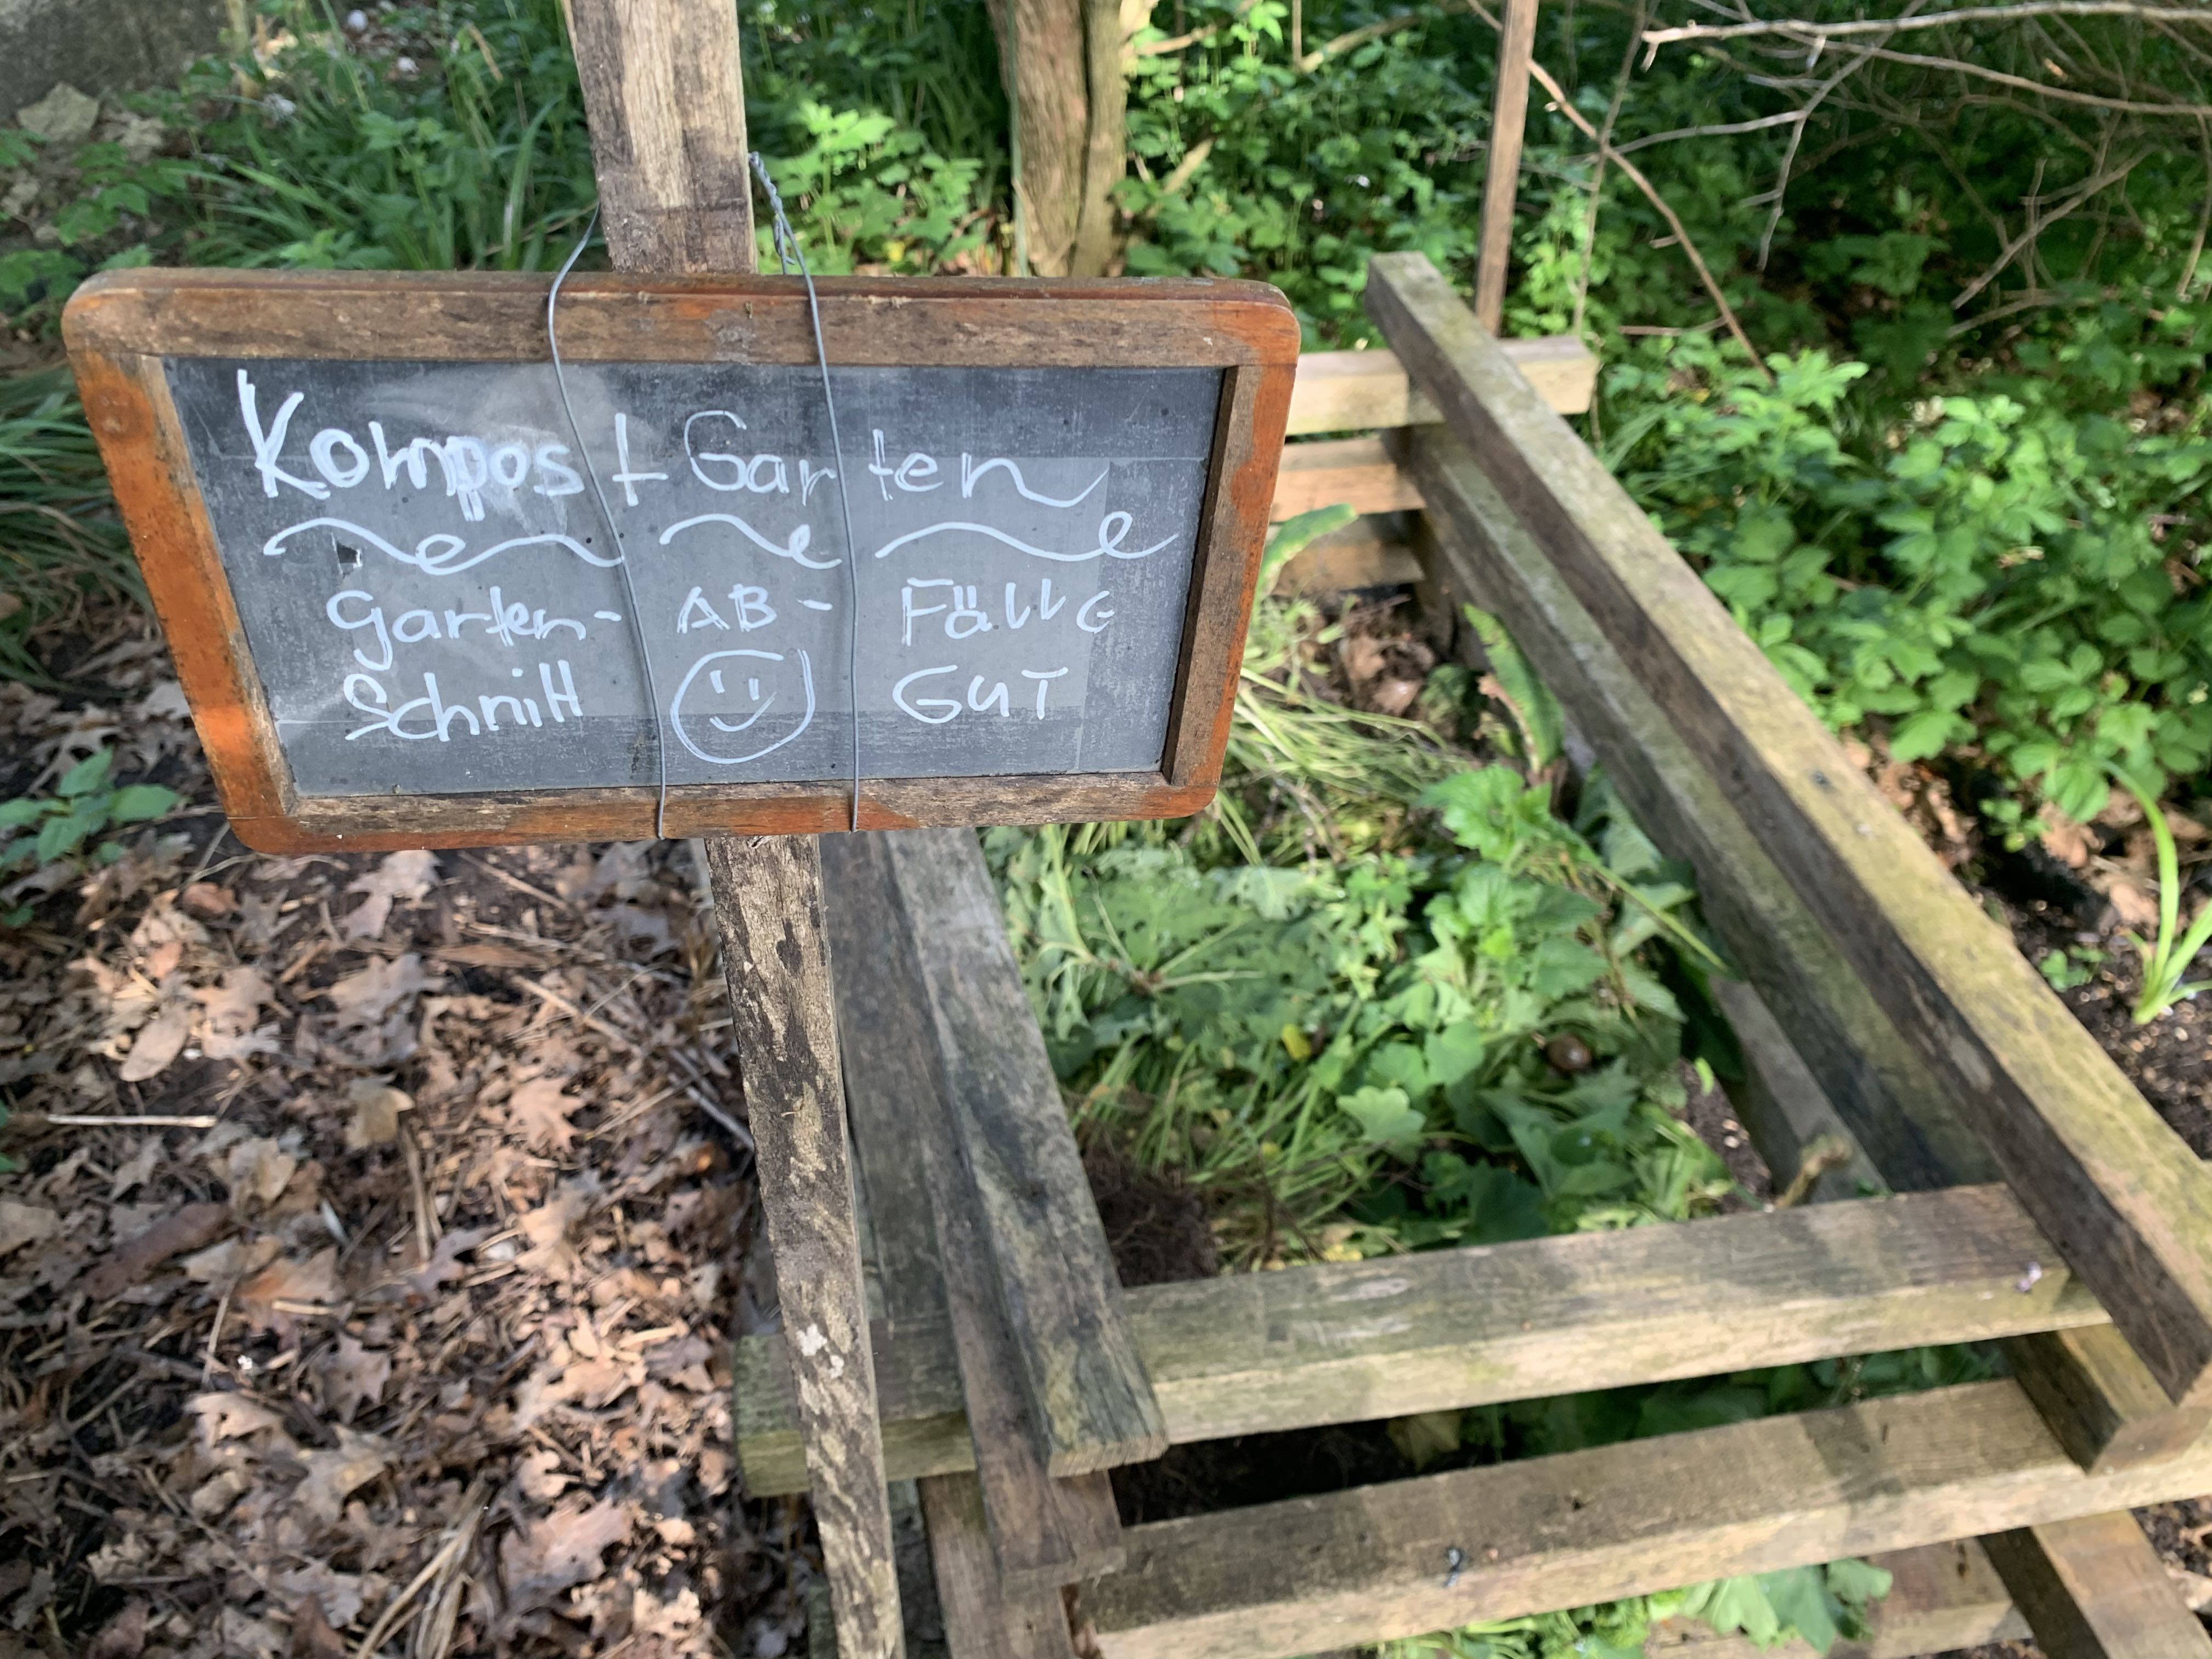 Kompost Garten
Garten- AB- Fälle
Schnitt GUT